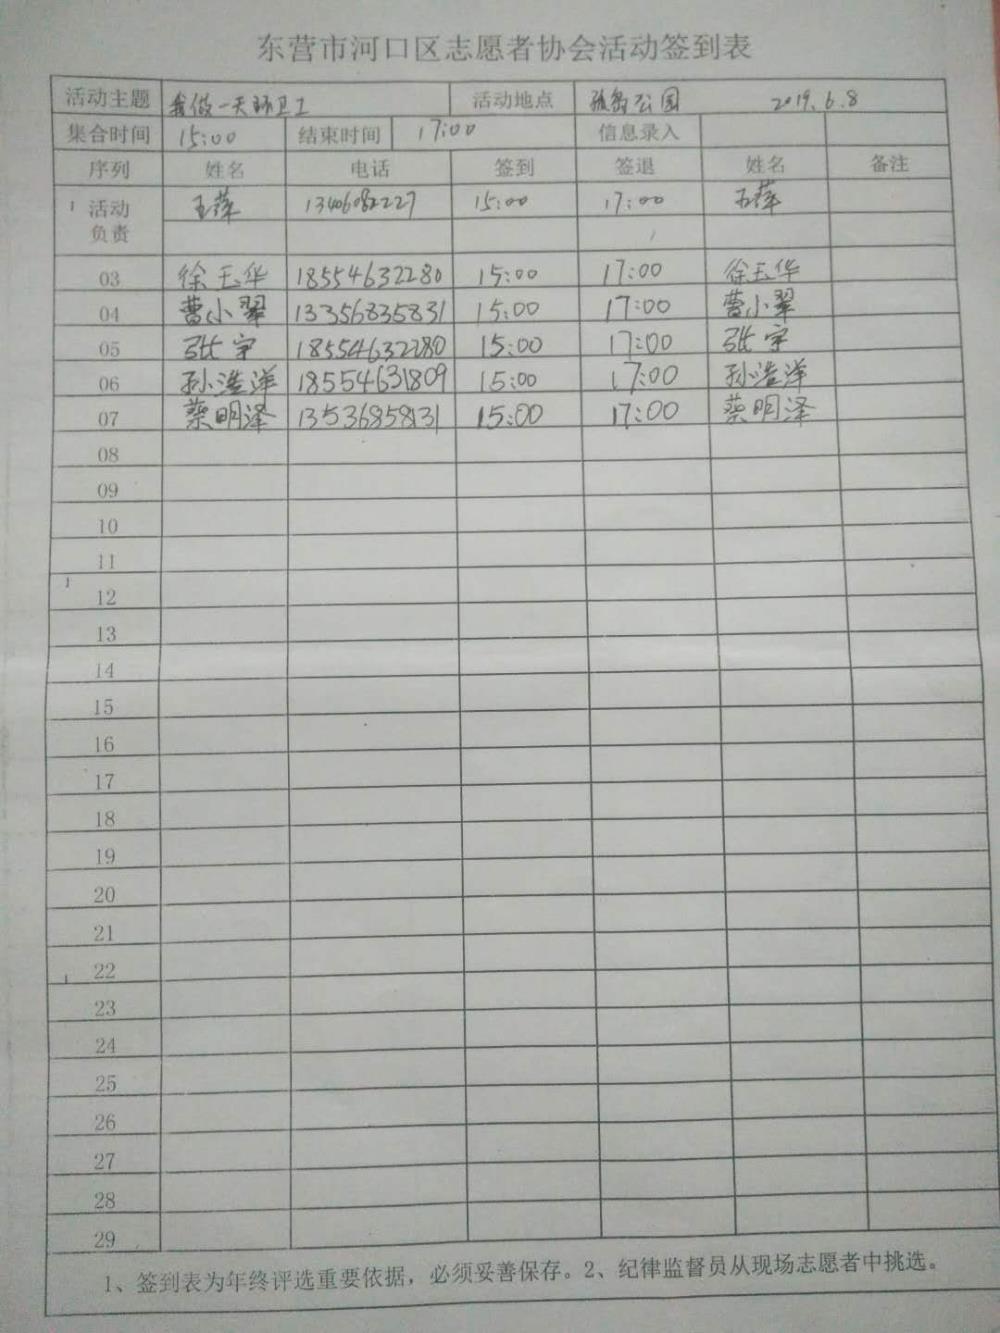 东营市河口区志愿者协会活动签到表
活动主题 我做一天环卫工 活动地点 孤岛公园 2019.6.8
集合时间 15:00 结束时间 17:00 信息录入
序列 姓名 电话 签到 签退 姓名 备注
活动负责 王萍 13406082227 15:00 17:00 王萍
03 徐玉华 18554632280 15:00 17:00 徐玉华
04 曹小翠 13356835831 15:00 17:00 曹小翠
05 张宇 18554632280 15:00 17:00 张宇
06 孙浩洋 18554631809 15:00 17:00 孙浩洋
07 蔡明泽 13536858131 15:00 17:00 蔡明泽
08
09
10
11
12
13
14
15
16
17
18
19
20
21
22
23
24
25
26
27
28
29
1、签到表为年终评选重要依据，必须妥善保存。2、纪律监督员从现场志愿者中挑选。